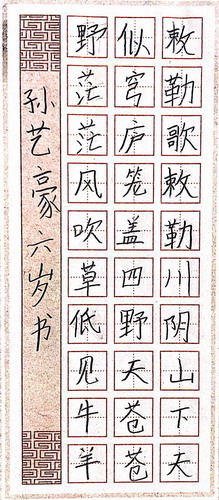 敕勒歌敕勒川阴山下天
似穹庐笼盖四野天苍苍
野茫茫风吹草低见牛羊
孙艺豪六岁书